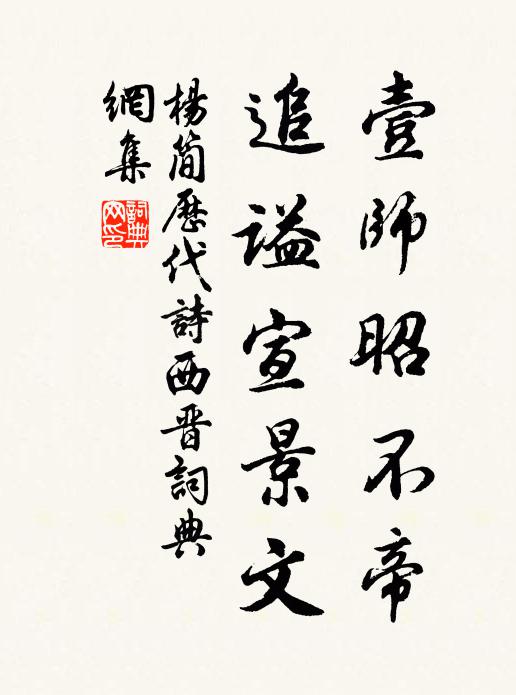 壹師昭不帝
追謚宣景文
楊簡歷代詩西晋詞典
網集
詞典網印